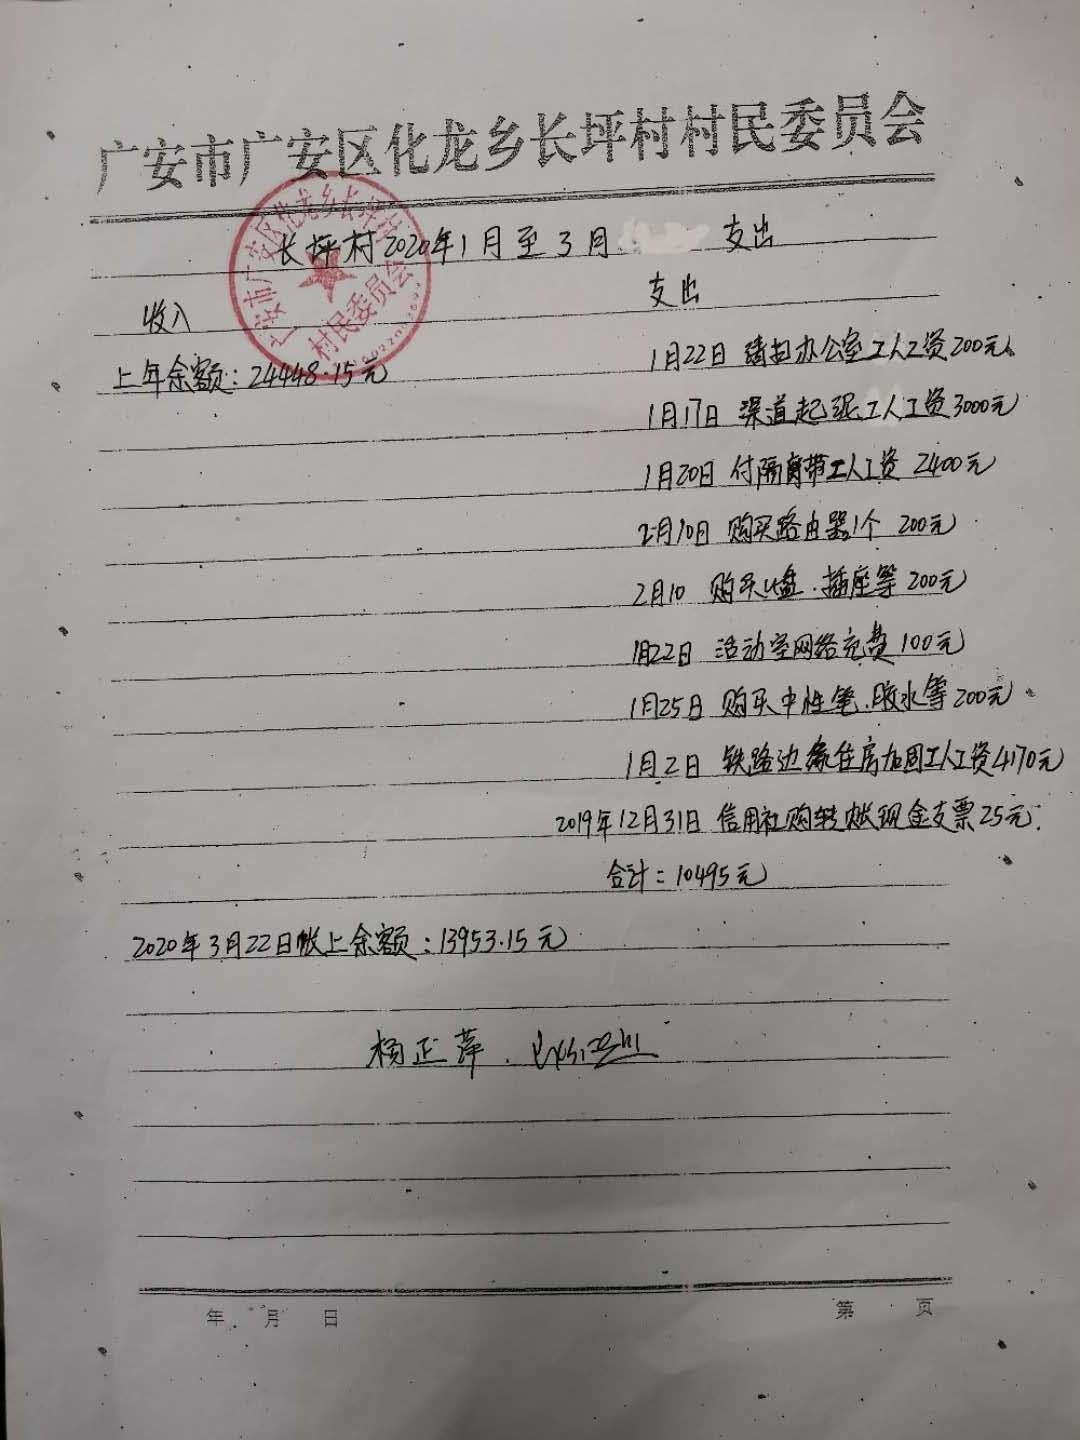 广安市广安区化龙乡长坪村村民委员会
长坪村2020年1月至3月 支出
收入 支出
上年余额：24448.15元
1月22日 清扫办公室工人工资200元
1月17日 渠道起泥工人工资3000元
1月20日 付隔离带工人工资 2400元
2月10日 购买路由器1个 200元
2月10 购买U盘、插座等200元
1月22日 活动室网络充费100元
1月25日 购买中性笔、胶水等200元
1月2日 铁路边缘住房加固工人工资4170元
2019年12月31日 信用社购转账现金支票25元
合计：10495元
2020年3月22日帐上余额：13953.15元
杨正萍
年 月 日 第 页
广安市广安区化龙乡长坪村
村民委员会